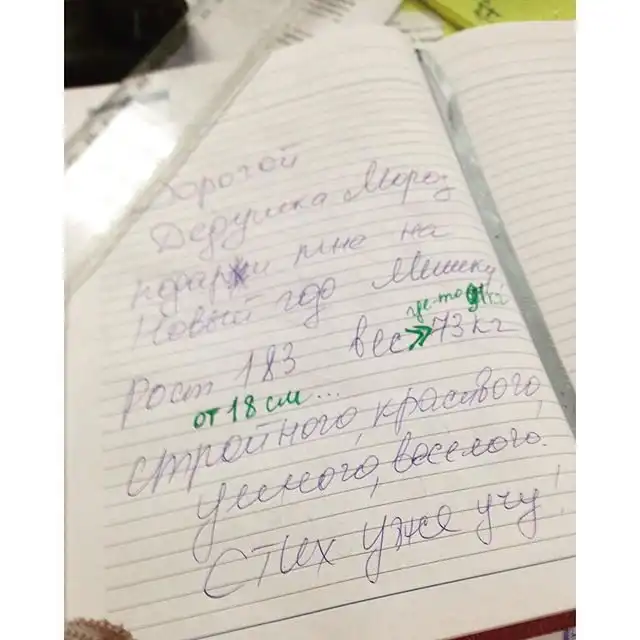 Дорогой
Дедушка Мороз
подари мне на
Новый год Мишку
где-то 91кг
Рост 183 вес >> 73кг
от 18 см...
стройного, красивого,
умного, веселого.
Стих уже учу!